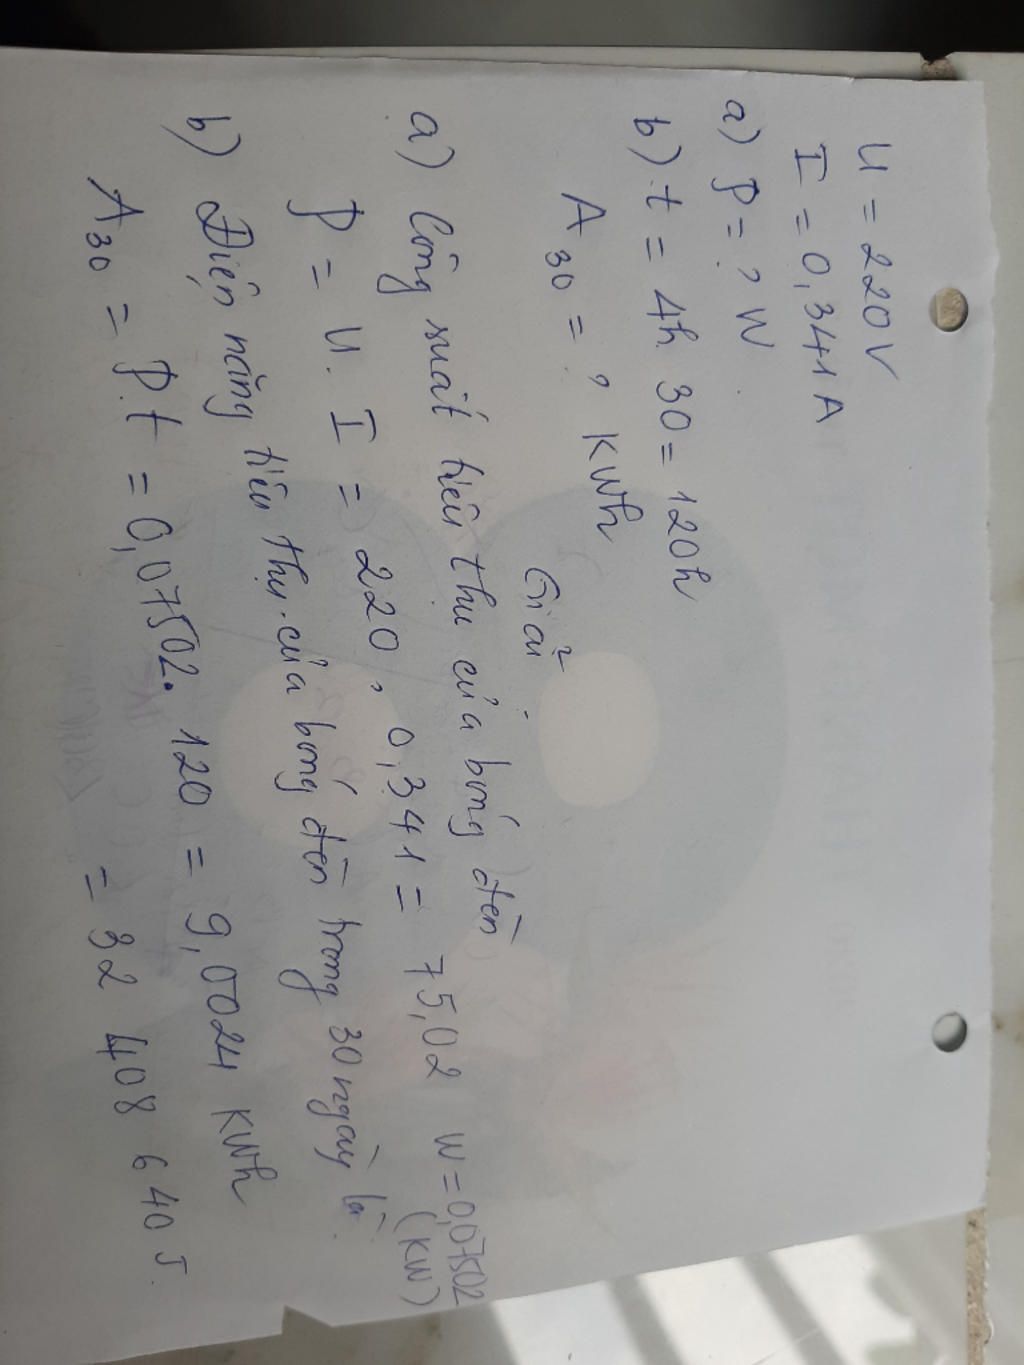 U = 220V
I = 0,341A
a) P = ? W
b) t = 4h. 30 = 120h
A30 = ? KWh
Giải
a) Công suất tiêu thụ của bóng đèn
P = U. I = 220, 0,341 = 75,02 W = 0,07502 (KW)
b) Điện năng tiêu thụ của bóng đèn trong 30 ngày là
A30 = P.t = 0,07502. 120 = 9,0024 KWh
= 32 408 640 J.